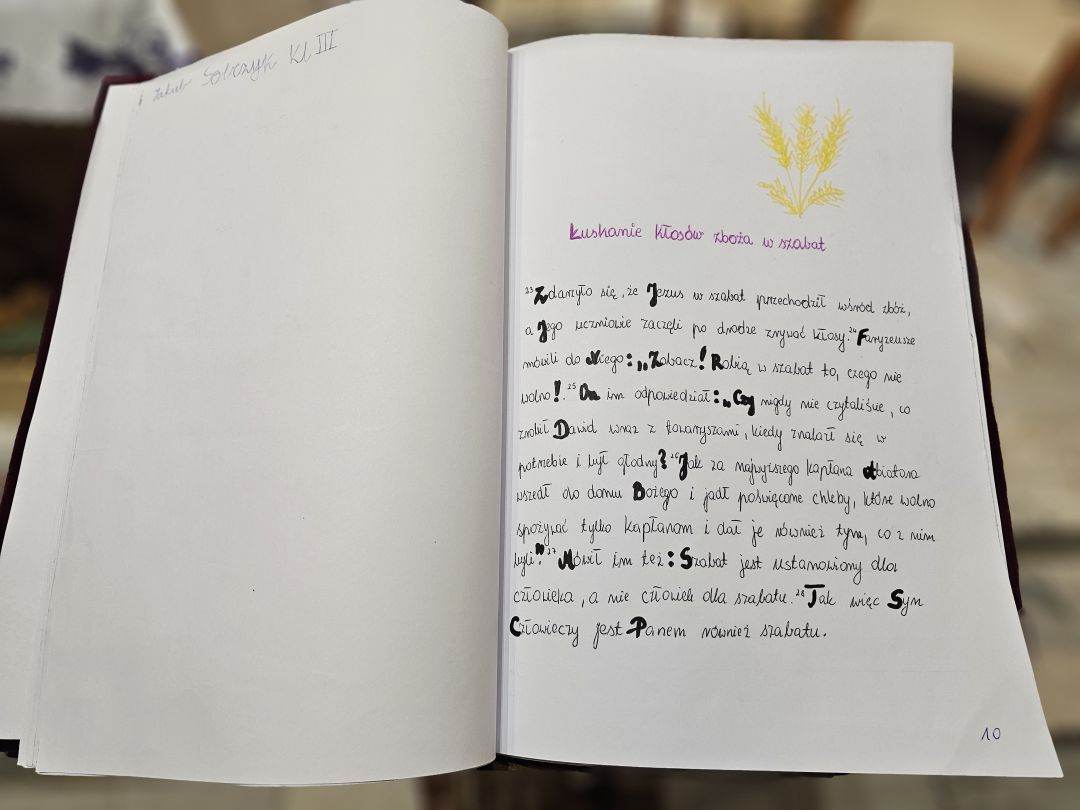 Jakub Sobczyk Kl III
Łuskanie kłosów zboża w szabat
²³Zdarzyło się, że Jezus w szabat przechodził wśród zbóż,
a Jego uczniowie zaczęli po drodze zrywać kłosy.²⁴Faryzeusze
mówili do Niego: „Zobacz! Robią w szabat to, czego nie
wolno!.²⁵ On im odpowiedział: „Czy nigdy nie czytaliście, co
zrobił Dawid wraz z towarzyszami, kiedy znalazł się w
potrzebie i był głodny?²⁶Jak za najwyższego kapłana Abiatara
wszedł do domu Bożego i jadł poświęcone chleby, które wolno
spożywać tylko kapłanom i dał je również tym, co z nim
byli?"²⁷ Mówił im też: Szabat jest ustanowiony dla
człowieka, a nie człowiek dla szabatu.²⁸Tak więc Syn
Człowieczy jest Panem również szabatu.
10